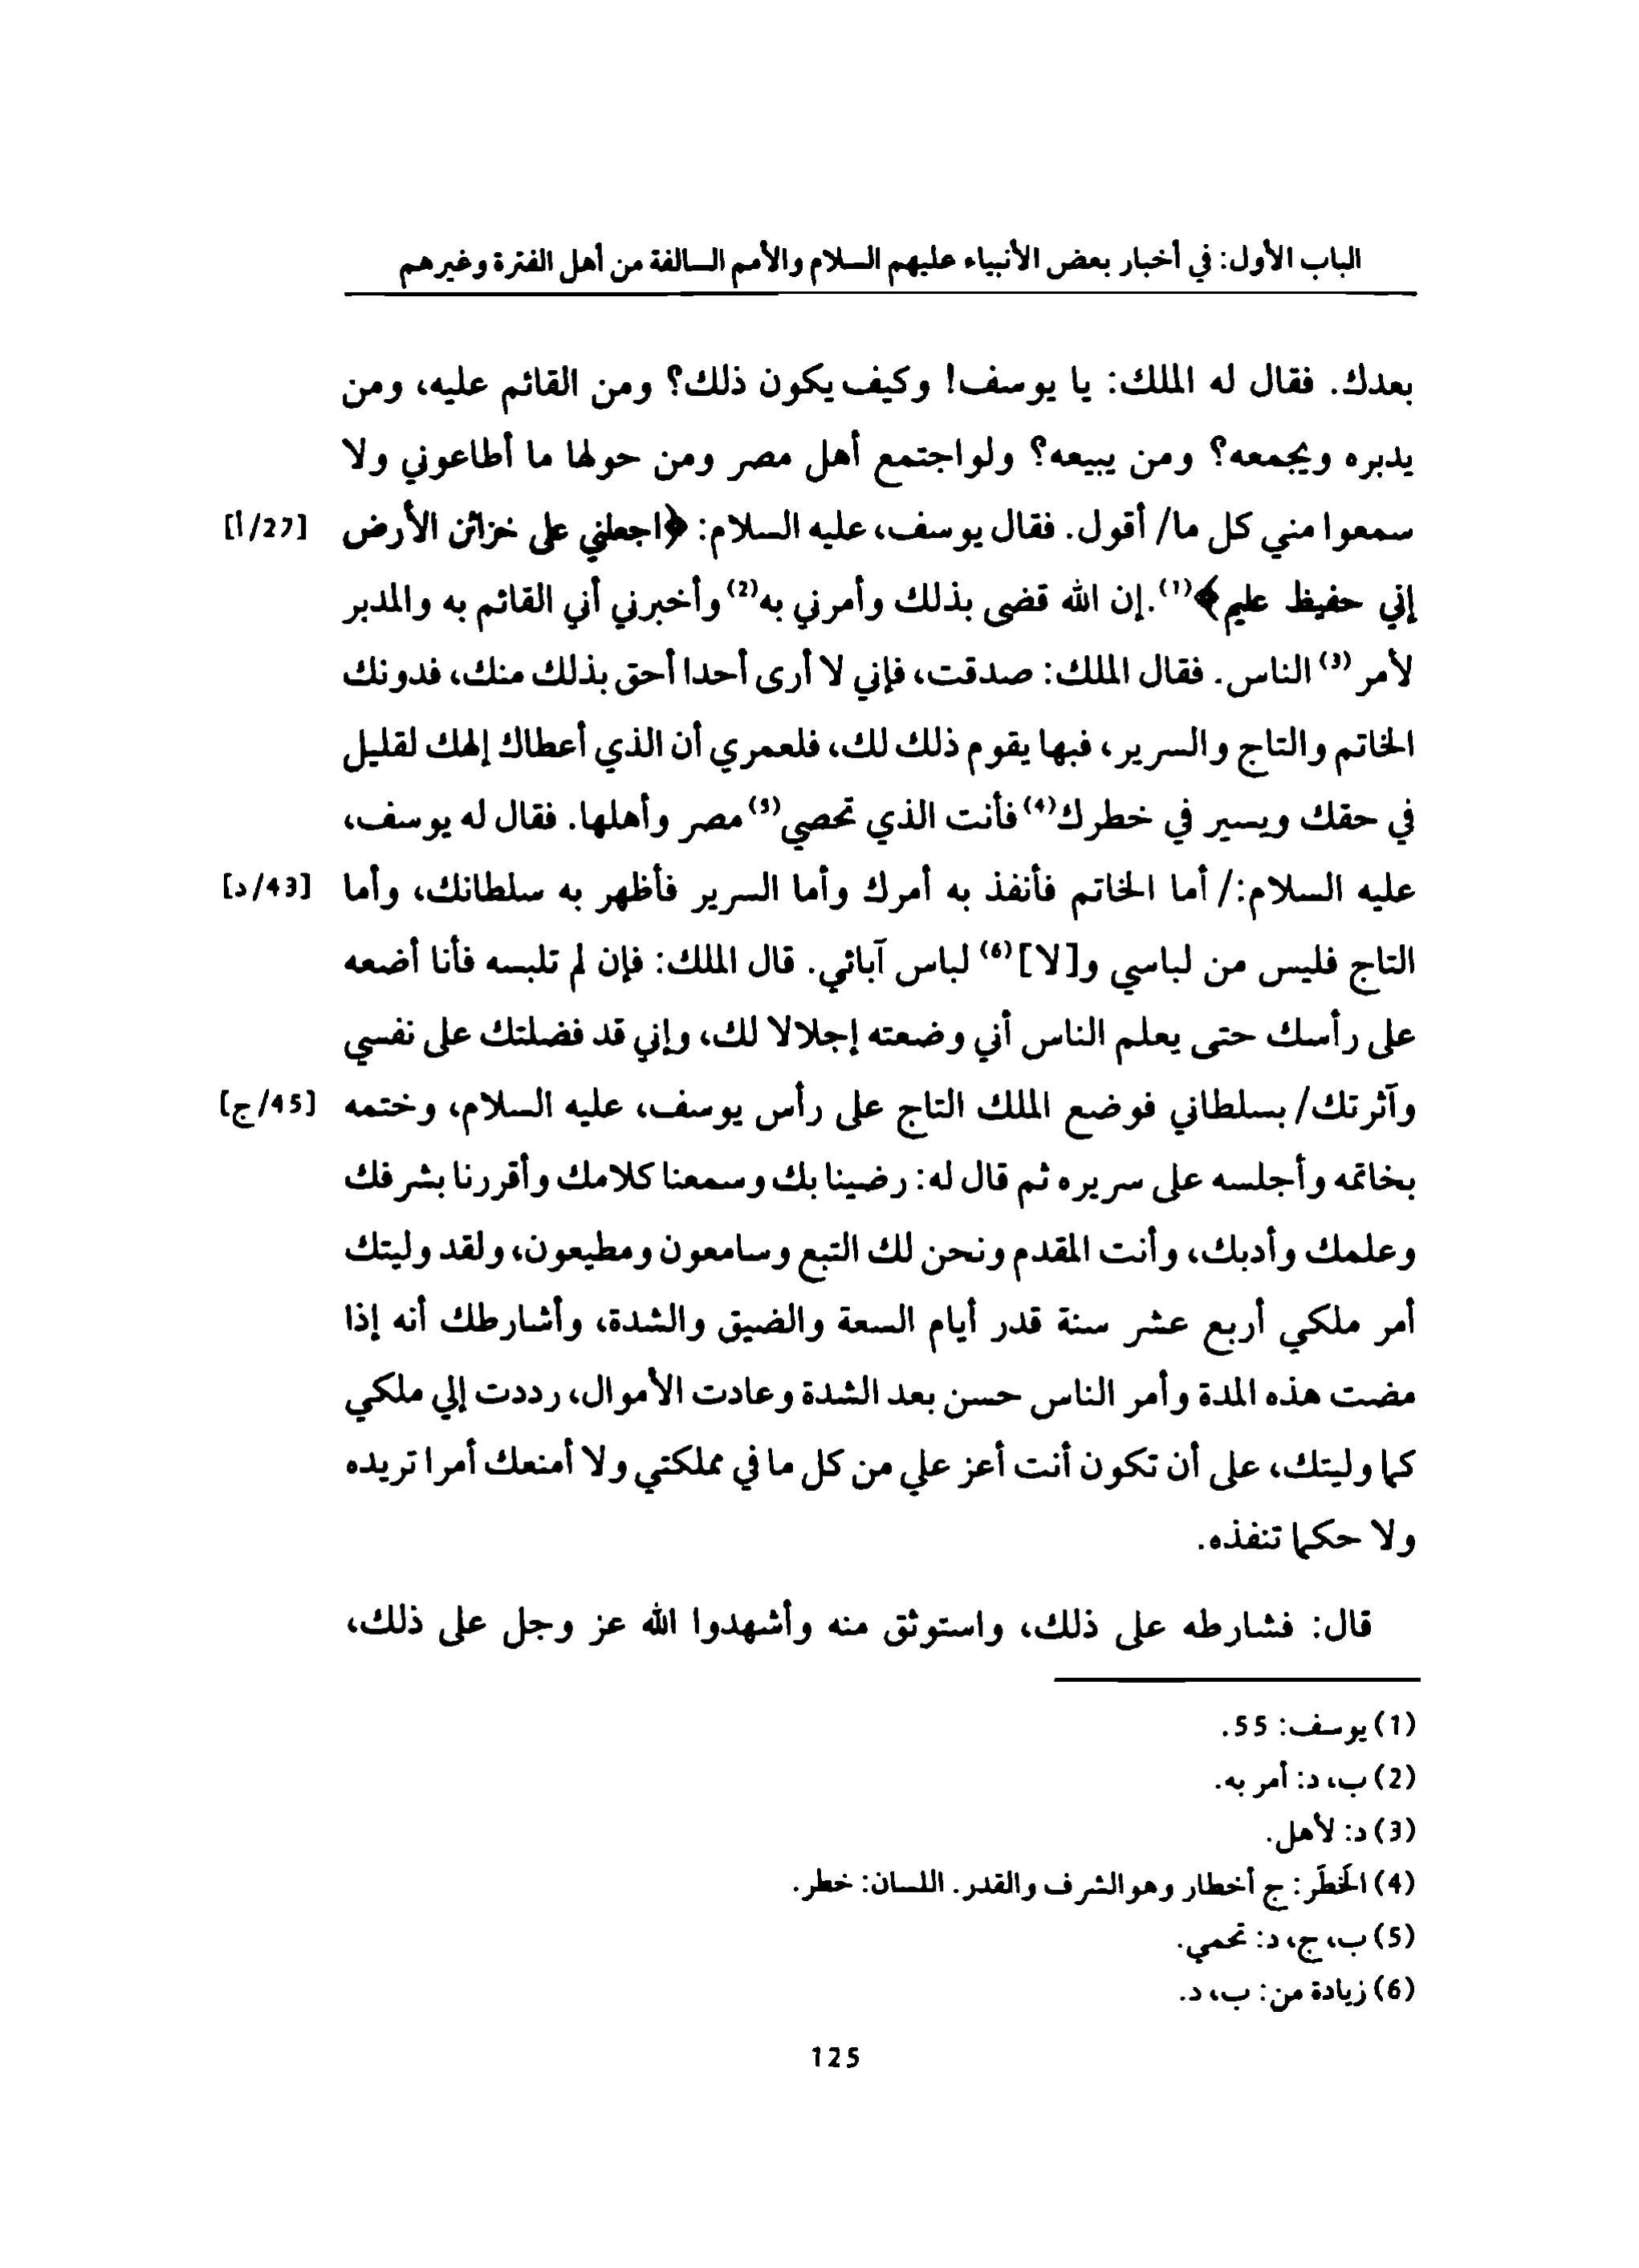 الباب الأول: في أخبار بعض الأنبياء عليهم السلام والأمم السالفة من أهل الفترة وغيرهم
بعدك. فقال له الملك: يا يوسف! وكيف يكون ذلك؟ ومن القائم عليه، ومن
يدبره ويجمعه؟ ومن يبيعه؟ ولواجتمع أهل مصر ومن حولها ما أطاعوني ولا
سمعوا مني كل ما/ أقول. فقال يوسف، عليه السلام: ﴿اجعلني على خزائن الأرض [27/أ]
إني حفيظ عليم﴾(1).إن الله قضى بذلك وأمرني به(2) وأخبرني أني القائم به والمدبر
لأمر(3) الناس. فقال الملك: صدقت، فإني لا أرى أحدا أحق بذلك منك، فدونك
الخاتم والتاج والسرير، فبها يقوم ذلك لك، فلعمري أن الذي أعطاك إلهك لقليل
في حقك ويسير في خطرك(4) فأنت الذي تحصي(5) مصر وأهلها. فقال له يوسف،
عليه السلام:/ أما الخاتم فأنفذ به أمرك وأما السرير فأظهر به سلطانك، وأما [43/د]
التاج فليس من لباسي و[لا](6) لباس آبائي. قال الملك: فإن لم تلبسه فأنا أضعه
على رأسك حتى يعلم الناس أني وضعته إجلالا لك، وإني قد فضلتك على نفسي
وآثرتك/ بسلطاني فوضع الملك التاج على رأس يوسف، عليه السلام، وختمه [45/ج]
بخاتمه وأجلسه على سريره ثم قال له: رضينا بك وسمعنا كلامك وأقررنا بشرفك
وعلمك وأدبك، وأنت المقدم ونحن لك التبع وسامعون ومطيعون، ولقد وليتك
أمر ملكي أربع عشر سنة قدر أيام السعة والضيق والشدة، وأشارطك أنه إذا
مضت هذه المدة وأمر الناس حسن بعد الشدة وعادت الأموال، رددت إلي ملكي
كما وليتك، على أن تكون أنت أعز علي من كل ما في مملكتي ولا أمنعك أمرا تريده
ولا حكما تنفذه.
قال: فشارطه على ذلك، واستوثق منه وأشهدوا الله عز وجل على ذلك،
(1) يوسف: 55.
(2) ب، د: أمر به.
(3) د: لأهل.
(4) الخَطَر: ج أخطار وهوالشرف والقدر. اللسان: خطر.
(5) ب، ج، د: تحمي.
(6) زيادة من: ب، د.
125